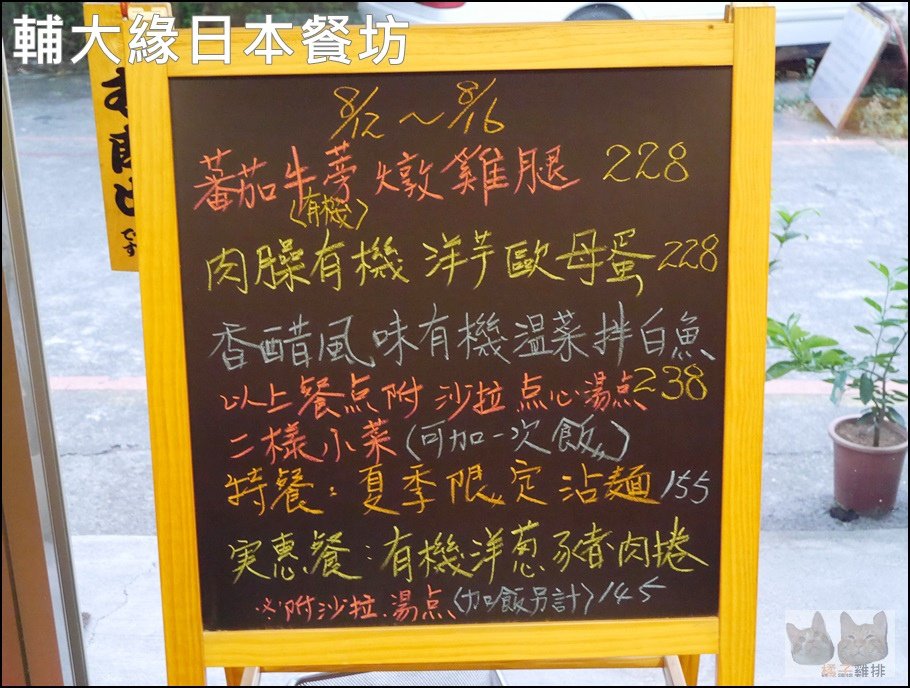 輔大緣日本餐坊
8/12～8/16
蕃茄牛蒡燉雞腿 228
(有機)
肉臊有機洋芋歐母蛋 228
香醋風味有機溫菜拌白魚
238
以上餐点附沙拉点心湯点
二樣小菜(可加一次飯)
特餐：夏季限定沾麵 155
実惠餐：有機洋葱豬肉捲
※附沙拉、湯点(加飯另計) 145
橘子雞排